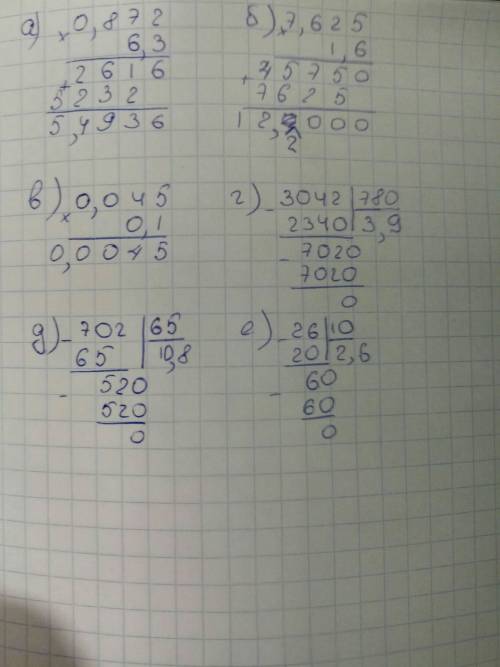 а) × 0,872
6,3
+ 2616
5232
5,4936
б) × 7,625
1,6
+ 45750
7625
12,2000
2
в) × 0,045
0,1
0,0045
г) - 3042 | 780
2340 | 3,9
- 7020
7020
0
д) - 702 | 65
65 | 10,8
- 520
520
0
е) - 26 | 10
20 | 2,6
- 60
60
0